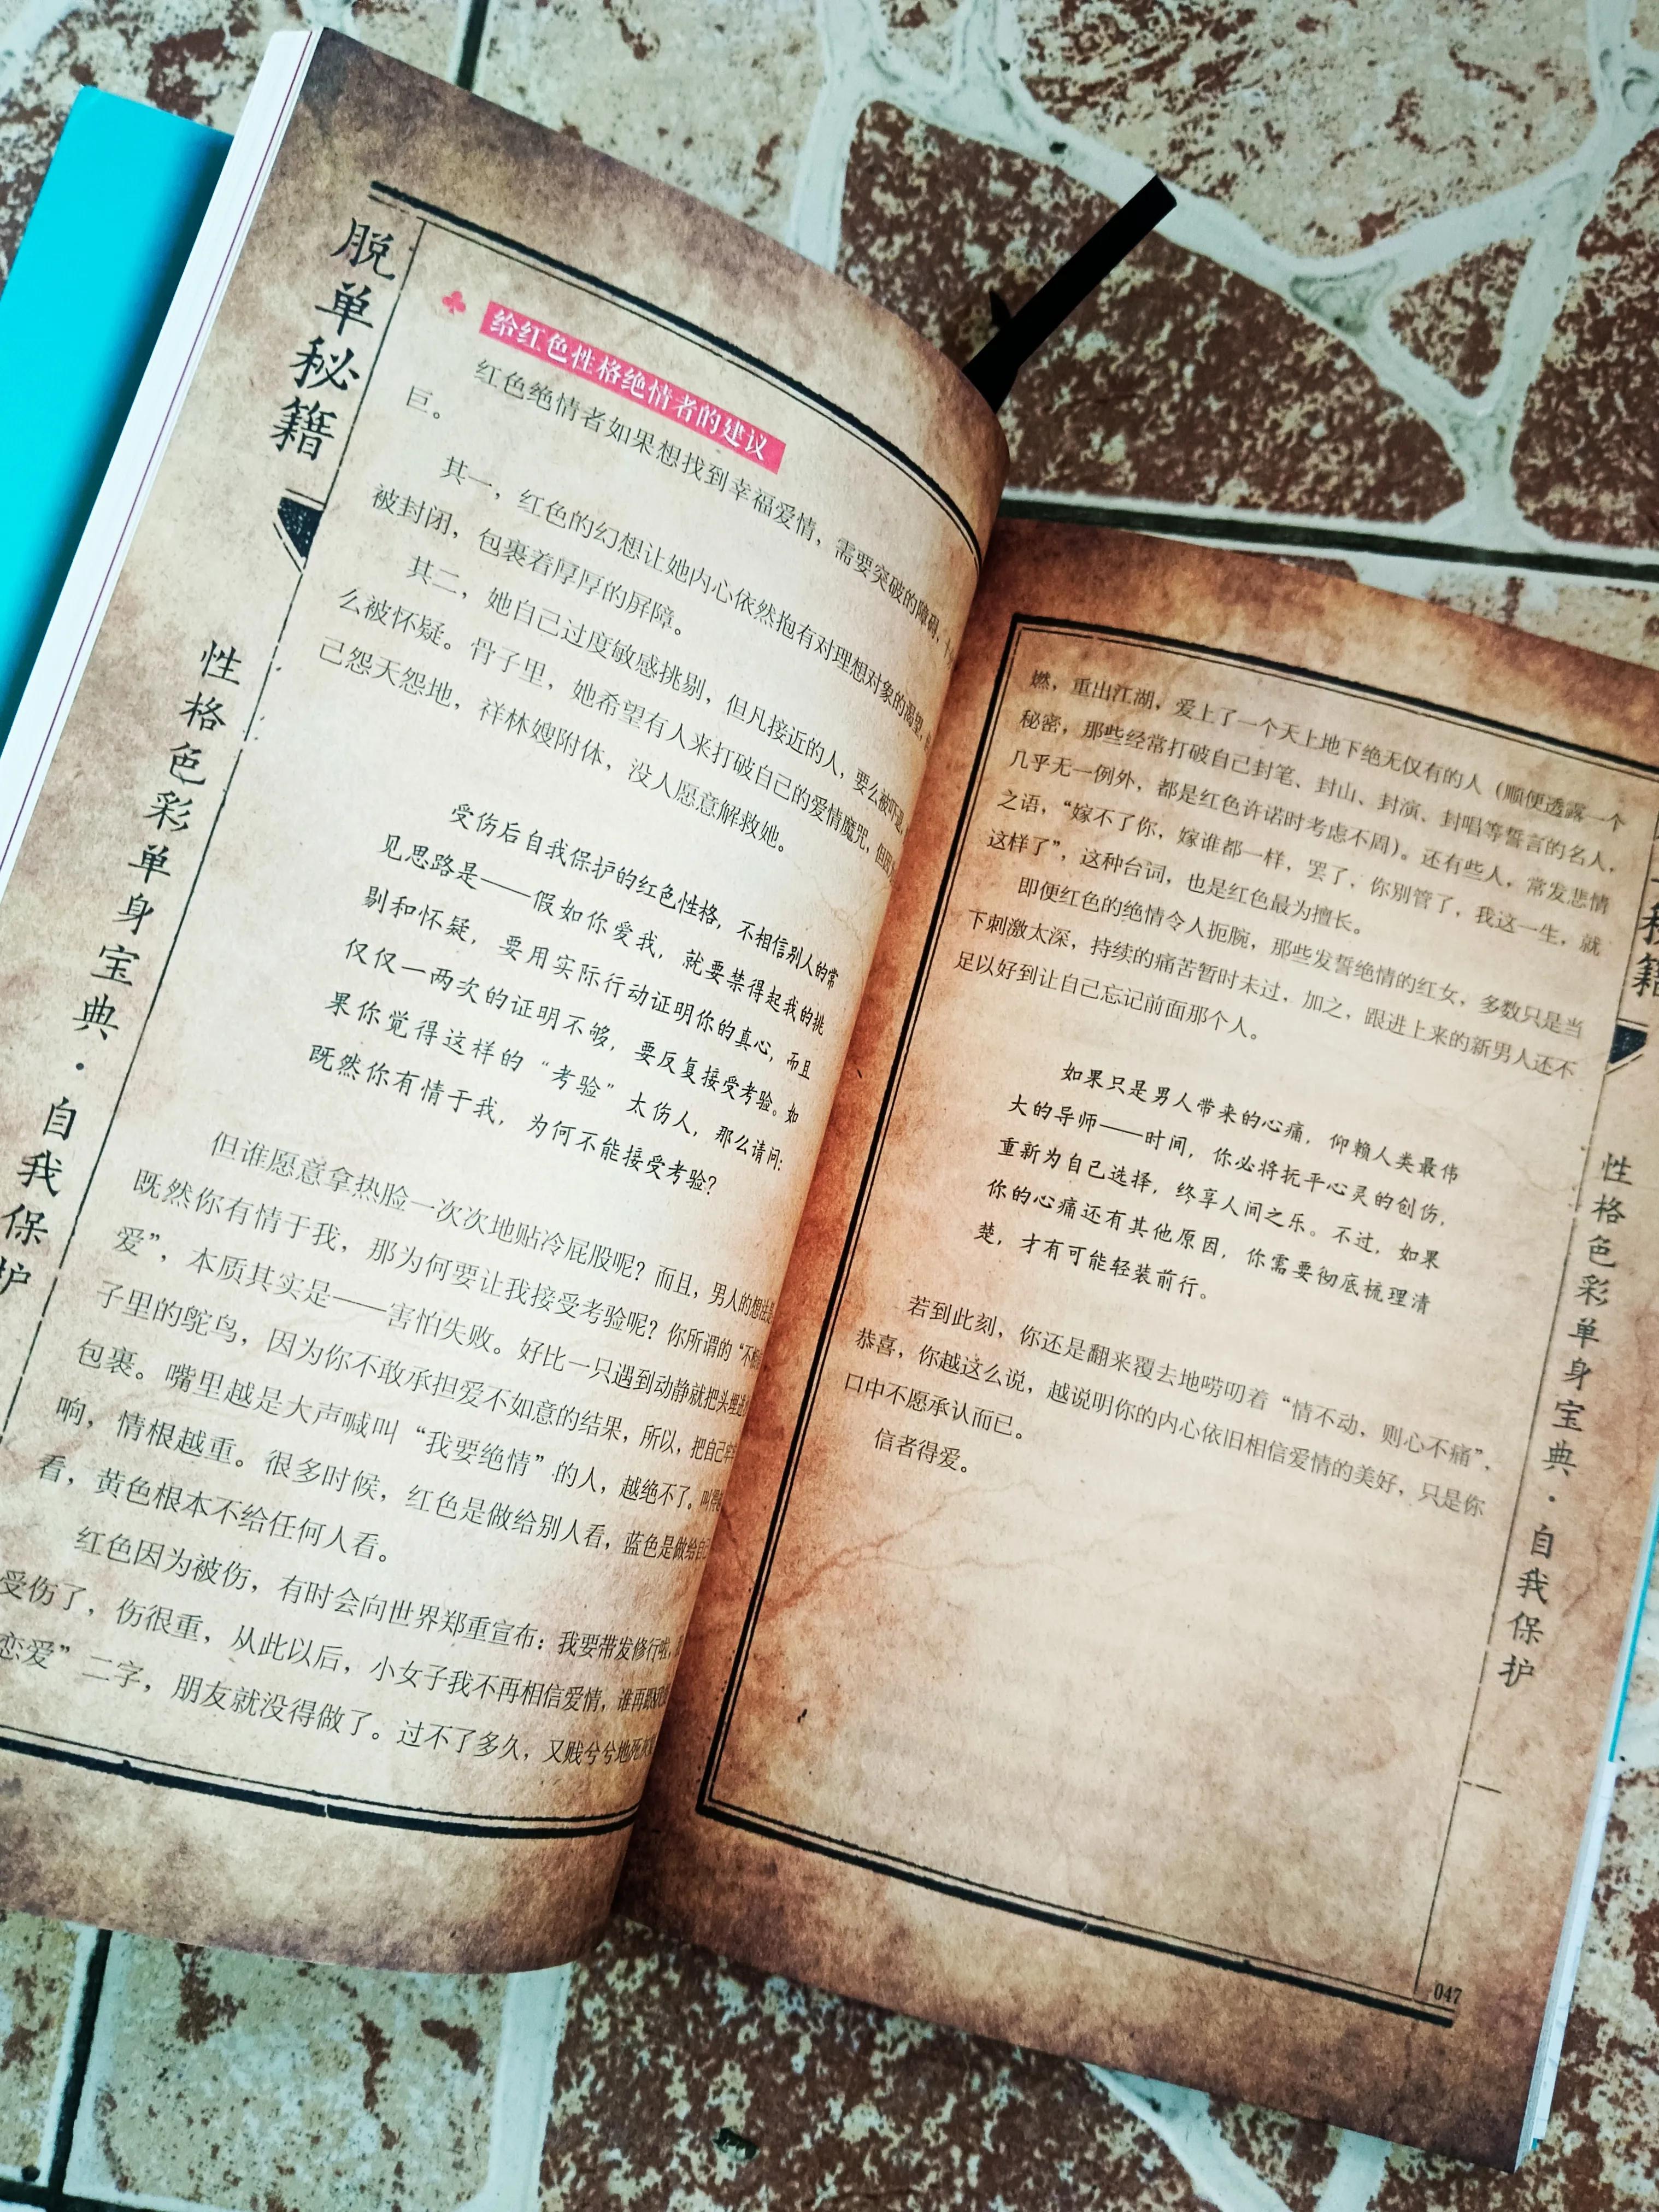 脱单秘籍
性格色彩单身宝典·自我保护
给红色性格绝情者的建议
红色绝情者如果想找到幸福爱情，需要突破的障碍，
巨。
其一，红色的幻想让她内心依然抱有对理想对象的渴望，
被封闭，包裹着厚厚的屏障。
其二，她自己过度敏感挑剔，但凡接近的人，要么被吓退，
么被怀疑。骨子里，她希望有人来打破自己的爱情魔咒，但
己怨天怨地，祥林嫂附体，没人愿意解救她。
受伤后自我保护的红色性格，不相信别人的常
见思路是——假如你爱我，就要禁得起我的挑
剔和怀疑，要用实际行动证明你的真心，而且
仅仅一两次的证明不够，要反复接受考验。如
果你觉得这样的“考验”太伤人，那么请问：
既然你有情于我，为何不能接受考验？
但谁愿意拿热脸一次次地贴冷屁股呢？而且，男人的想法是
既然你有情于我，那为何要让我接受考验呢？你所谓的“不
爱”，本质其实是——害怕失败。好比一只遇到动静就把头埋进
子里的鸵鸟，因为你不敢承担爱不如意的结果，所以，把自己牢
包裹。嘴里越是大声喊叫“我要绝情”的人，越绝不了。叫得
响，情根越重。很多时候，红色是做给别人看，蓝色是做给自己
看，黄色根本不给任何人看。
红色因为被伤，有时会向世界郑重宣布：我要带发修行啦，
受伤了，伤很重，从此以后，小女子我不再相信爱情，谁再跟我
恋爱”二字，朋友就没得做了。过不了多久，又贱兮兮地死灰
燃，重出江湖，爱上了一个天上地下绝无仅有的人（顺便透露一个
秘密，那些经常打破自己封笔、封山、封演、封唱等誓言的名人，
几乎无一例外，都是红色许诺时考虑不周）。还有些人，常发悲情
之语，“嫁不了你，嫁谁都一样，罢了，你别管了，我这一生，就
这样了”，这种台词，也是红色最为擅长。
即便红色的绝情令人扼腕，那些发誓绝情的红女，多数只是当
下刺激太深，持续的痛苦暂时未过，加之，跟进上来的新男人还不
足以好到让自己忘记前面那个人。
如果只是男人带来的心痛，仰赖人类最伟
大的导师——时间，你必将抚平心灵的创伤，
重新为自己选择，终享人间之乐。不过，如果
你的心痛还有其他原因，你需要彻底梳理清
楚，才有可能轻装前行。
若到此刻，你还是翻来覆去地唠叨着“情不动，则心不痛”，
恭喜，你越这么说，越说明你的内心依旧相信爱情的美好，只是你
口中不愿承认而已。
信者得爱。
秘籍
性格色彩单身宝典·自我保护
047